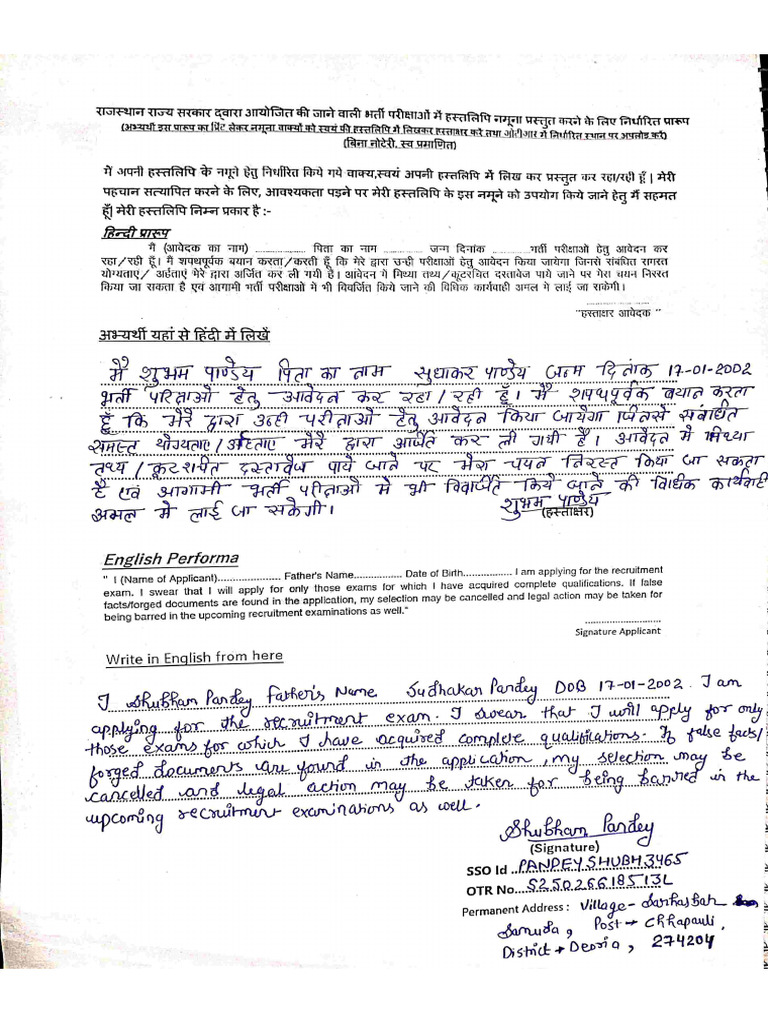 राजस्थान राज्य सरकार द्वारा आयोजित की जाने वाली भर्ती परीक्षाओं में हस्तलिपि नमूना प्रस्तुत करने के लिए निर्धारित प्रारूप
(अभ्यर्थी इस प्रारूप का प्रिंट लेकर नमूना वाक्यों को स्वयं की हस्तलिपि में लिखकर हस्ताक्षर करें तथा ओटीआर में निर्धारित स्थान पर अपलोड करें)
(बिना नोटेरी, स्व प्रमाणित)
मैं अपनी हस्तलिपि के नमूने हेतु निर्धारित किये गये वाक्य,स्वयं अपनी हस्तलिपि में लिख कर प्रस्तुत कर रहा/रही हूँ | मेरी
पहचान सत्यापित करने के लिए, आवश्यकता पड़ने पर मेरी हस्तलिपि के इस नमूने को उपयोग किये जाने हेतु मैं सहमत
हूँ| मेरी हस्तलिपि निम्न प्रकार है :-
हिन्दी प्रारूप
मैं (आवेदक का नाम) ................ पिता का नाम ............ जन्म दिनांक ............भर्ती परीक्षाओ हेतु आवेदन कर
रहा/रही हूँ। मैं शपथपूर्वक बयान करता/करती हूँ कि मेरे द्वारा उन्ही परीक्षाओं हेतु आवेदन किया जायेगा जिनसे संबंधित समस्त
योग्यताएं/ अर्हताएं मेरे द्वारा अर्जित कर ली गयी है। आवेदन में मिथ्या तथ्य/कूटरचित दस्तावेज पाये जाने पर मेरा चयन निरस्त
किया जा सकता है एवं आगामी भर्ती परीक्षाओं में भी विवर्जित किये जाने की विधिक कार्यवाही अमल मे लाई जा सकेगी।
"हस्ताक्षर आवेदक"
अभ्यर्थी यहां से हिंदी में लिखें
मै शुभम पाण्डेय पिता का नाम सुधाकर पाण्डेय जन्म दिनांक 17-01-2002
भर्ती परिताओ हेतु आवेदन कर रहा/रही हूँ। मै शपथपूर्वक बयान करता
हूँ कि मेरे द्वारा उन्ही परीताओ हेतु आवेदन किया जायेगा जिनसे संबंधित
समस्त योग्यताए/अर्हताए मेरे द्वारा अर्जित कर ली गयी है। आवेदन मे मिथ्या
तथ्य/कूटरचित दस्तावेज पाये जाने पर मेरा चयन निरस्त किया जा सकता
है एवं आगामी भर्ती परीताओ मे भी विवर्जित किये जाने की विधिक कार्यवाही
अमल मे लाई जा सकेगी।
शुभम पाण्डेय
(हस्ताक्षर)
English Performa
" I (Name of Applicant)..................... Father's Name................ Date of Birth................ I am applying for the recruitment
exam. I swear that I will apply for only those exams for which I have acquired complete qualifications. If false
facts/forged documents are found in the application, my selection may be cancelled and legal action may be taken for
being barred in the upcoming recruitment examinations as well."
Signature Applicant
Write in English from here
I Shubham Pandey Father's Name Sudhakar Pandey DOB 17-01-2002. I am
applying for the recruitment exam. I swear that I will apply for only
those exams for which I have acquired complete qualifilications. If false facts/
forged documents are found in the application, my selection may be
cancelled and legal action may be taken for being barred in the
upcoming recruitment examinations as well.
Shubham Pandey
(Signature)
SSO Id ..PANDEYSHUBH3465
OTR No....S25026618513L
Permanent Address : Village-
Post → Chhapauli,
District → Deoria, 274204